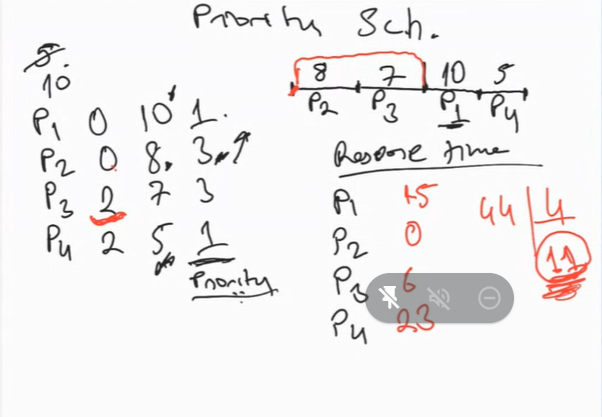 Priority Sch.
10
P1 0 10 1.
P2 0 8. 3.
P3 2 7 3
P4 2 5 1
Priority
8 7 10 5
P2 P3 P1 P4
Resposne time
P1 15
P2 0
P3 6
P4 23
44 4
11